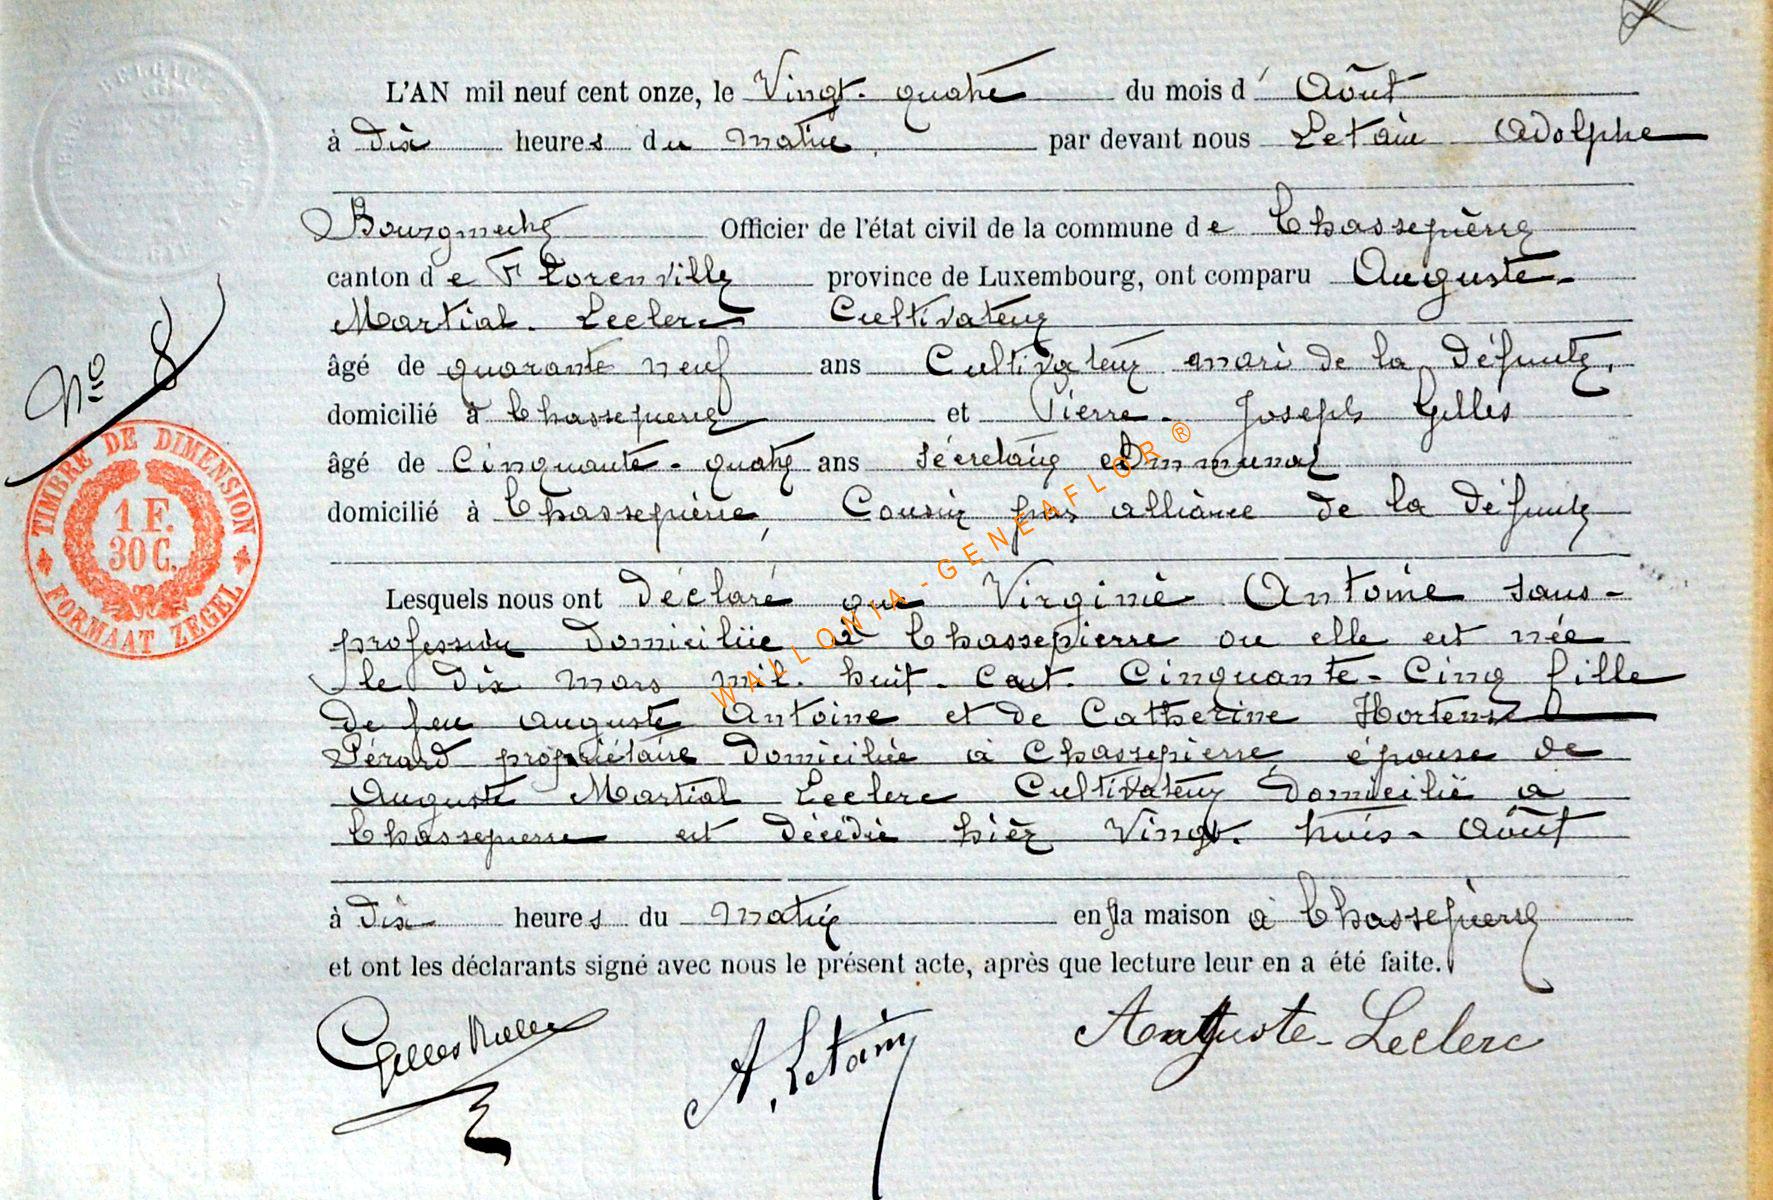 L'AN mil neuf cent onze, le Vingt-quatre du mois d' Août
à Dix heures du matin par devant nous Letain Adolphe
Bourgmestre Officier de l'état civil de la commune de Chassepierre
canton de Florenville province de Luxembourg, ont comparu Auguste-
Martial Leclerc Cultivateur
âgé de quarante neuf ans Cultivateur mari de la défunte,
domicilié à Chassepierre et Pierre-Joseph Gilles
âgé de Cinquante-quatre ans sécretaire communal
domicilié à Chassepierre, Cousin par alliance de la défunte
Lesquels nous ont déclaré que Virginie Antoine sans-
profession domiciliée à Chassepierre ou elle est née
le dix mars mil-huit-cent-Cinquante-Cinq fille
de feu Auguste Antoine et de Catherine Hortense
Pérard propriétaire domiciliée à Chassepierre, épouse de
Auguste Martial Leclerc Cultivateur domicilié à
Chassepierre est décédée hier Vingt-trois-Août
à Dix heures du matin en la maison à Chassepierre
et ont les déclarants signé avec nous le présent acte, après que lecture leur en a été faite.
Gilles
A. Letain
Auguste-Leclerc
No 8
TIMBRE DE DIMENSION
1 F.
30 C.
FORMAAT ZEGEL
WALLONIA-GENEAFLOR®